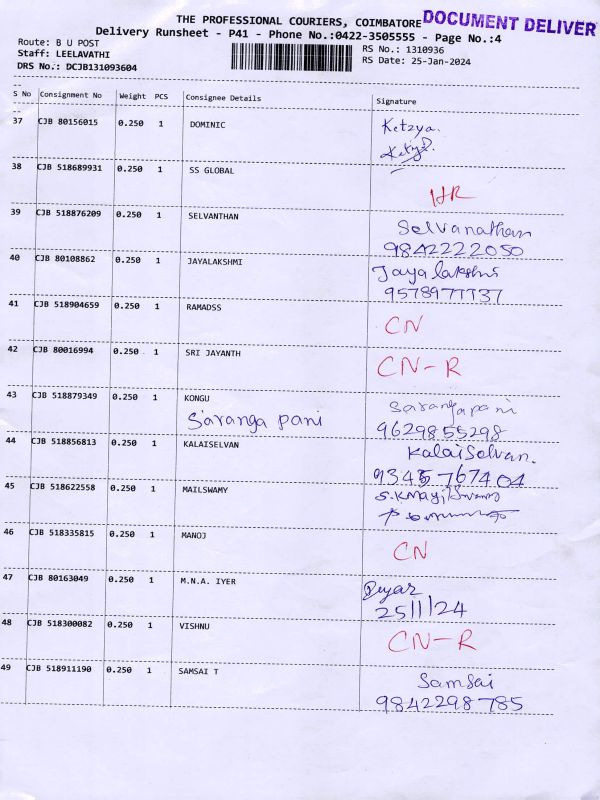 THE PROFESSIONAL COURIERS, COIMBATORE DOCUMENT DELIVER
Delivery Runsheet - P41 - Phone No.:0422-3505555 - Page No.:4
Route: B U POST RS No.: 1310936
Staff: LEELAVATHI RS Date: 25-Jan-2024
DRS No.: DCJB131093604
S No Consignment No Weight PCS Consignee Details Signature
37 CJB 80156015 0.250 1 DOMINIC Ketzya.
38 CJB 518689931 0.250 1 SS GLOBAL
HR
39 CJB 518876209 0.250 1 SELVANTHAN Selvanathan
9842222050
40 CJB 80108862 0.250 1 JAYALAKSHMI Jayalakshmi
9578977737
41 CJB 518904659 0.250 1 RAMADSS
CN
42 CJB 80016994 0.250 1 SRI JAYANTH
CN-R
43 CJB 518879349 0.250 1 KONGU Sarangapani
Saranga pani 9629855298
44 CJB 518856813 0.250 1 KALAISELVAN Kalaiselvan.
9345767404
45 CJB 518622558 0.250 1 MAILSWAMY
46 CJB 518335815 0.250 1 MANOJ
CN
47 CJB 80163049 0.250 1 M.N.A. IYER
25/1/24
48 CJB 518300082 0.250 1 VISHNU
CN-R
49 CJB 518911190 0.250 1 SAMSAI T Samsai
9842298785